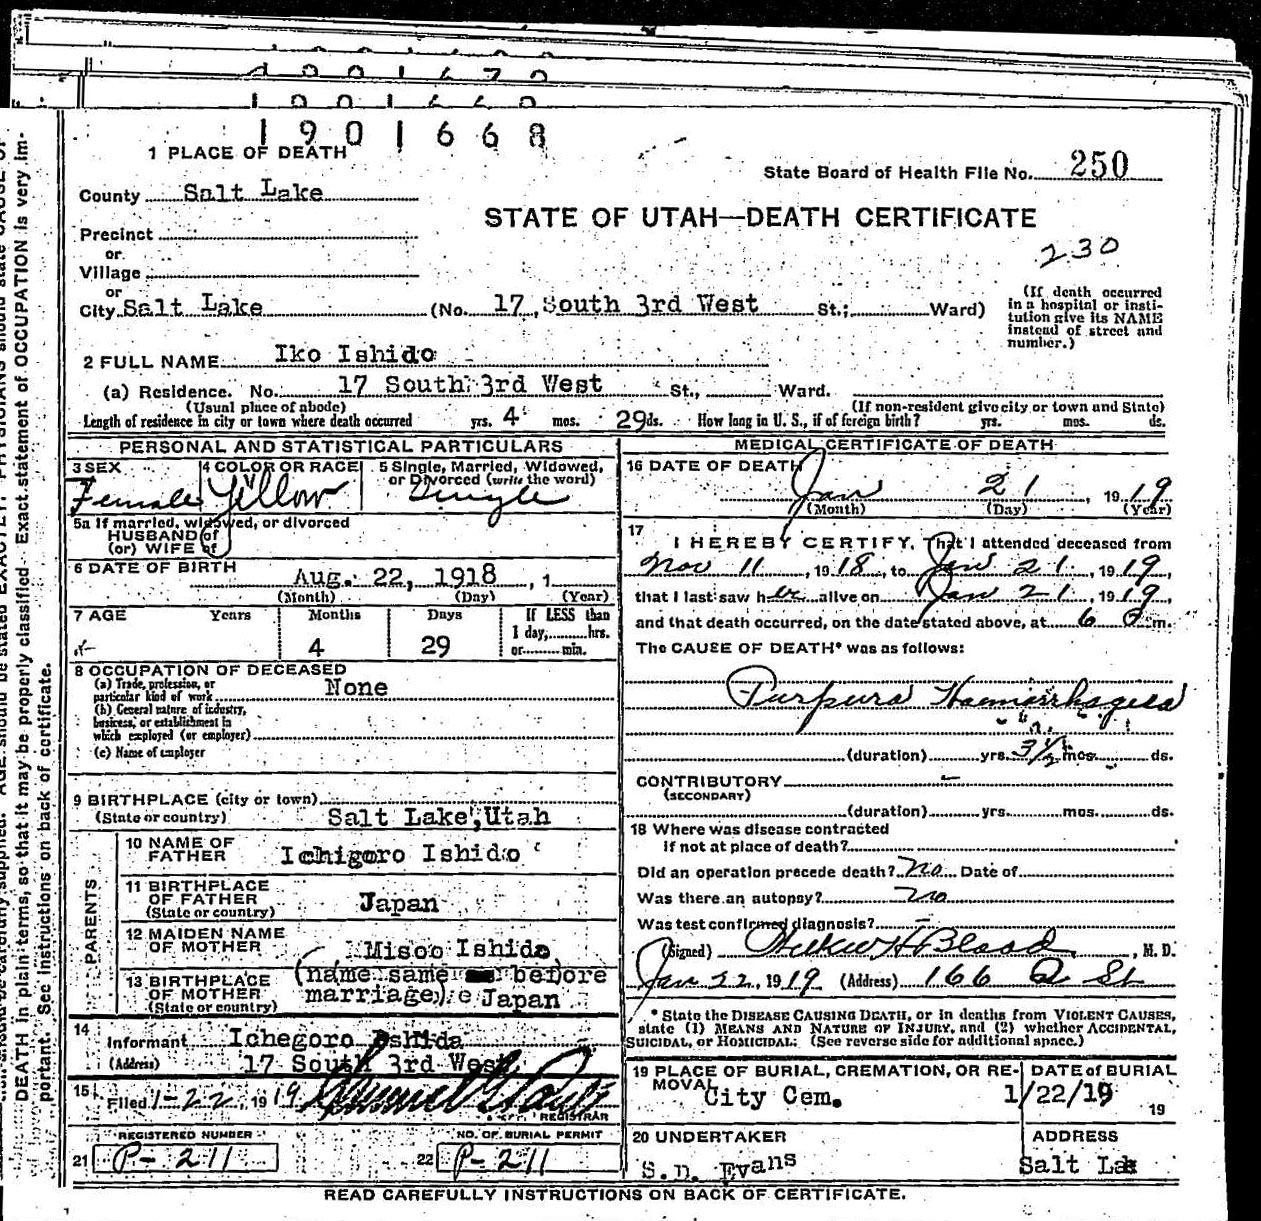 1901668
1 PLACE OF DEATH
State Board of Health File No. 250
County Salt Lake
STATE OF UTAH—DEATH CERTIFICATE
Precinct
or
230
Village
or
City Salt Lake (No. 17, South 3rd West St.; Ward)
(If death occurred in a hospital or institution give its NAME instead of street and number.)
2 FULL NAME Iko Ishido
(a) Residence. No. 17 South 3rd West St., Ward.
(Usual place of abode) (If non-resident give city or town and State)
Length of residence in city or town where death occurred yrs. 4 mos. 29 ds. How long in U. S., if of foreign birth? yrs. mos. ds.
PERSONAL AND STATISTICAL PARTICULARS
3 SEX 4 COLOR OR RACE 5 Single, Married, Widowed, or Divorced (write the word)
Female Yellow Single
5a If married, widowed, or divorced
HUSBAND of
(or) WIFE of
6 DATE OF BIRTH Aug. 22, 1918, 1
(Month) (Day) (Year)
7 AGE Years Months Days If LESS than
1 day, hrs.
or min.
4 29
8 OCCUPATION OF DECEASED
(a) Trade, profession, or
particular kind of work None
(b) General nature of industry,
business, or establishment in
which employed (or employer)
(c) Name of employer
9 BIRTHPLACE (city or town)
(State or country) Salt Lake, Utah
PARENTS
10 NAME OF
FATHER Ichigoro Ishido
11 BIRTHPLACE
OF FATHER Japan
(State or country)
12 MAIDEN NAME
OF MOTHER Misoo Ishido
(name same before
13 BIRTHPLACE
OF MOTHER marriage) Japan
(State or country)
14
Informant Ichegoro Ishida
(Address) 17 South 3rd West
15 Filed 1-22, 1919
REGISTRAR
REGISTERED NUMBER NO. OF BURIAL PERMIT
21 P-211 22 P-211
MEDICAL CERTIFICATE OF DEATH
16 DATE OF DEATH
Jan 21, 1919
(Month) (Day) (Year)
17
I HEREBY CERTIFY, That I attended deceased from
Nov 11, 1918, to Jan 21, 1919,
that I last saw her alive on Jan 21, 1919,
and that death occurred, on the date stated above, at 6 m.
The CAUSE OF DEATH* was as follows:
Purpura Haemorrhagica
(duration) yrs. 3½ mos. ds.
CONTRIBUTORY
(SECONDARY)
(duration) yrs. mos. ds.
18 Where was disease contracted
if not at place of death?
Did an operation precede death? No Date of
Was there an autopsy? No
Was test confirmed diagnosis? –
(Signed) H Blood, M. D.
Jan 22, 1919 (Address) 166 Q St
* State the DISEASE CAUSING DEATH, or in deaths from VIOLENT CAUSES,
state (1) MEANS AND NATURE OF INJURY, and (2) whether ACCIDENTAL,
SUICIDAL, or HOMICIDAL. (See reverse side for additional space.)
19 PLACE OF BURIAL, CREMATION, OR RE- DATE of BURIAL
MOVAL City Cem. 1/22/19 19
20 UNDERTAKER ADDRESS
S.D. Evans Salt La
READ CAREFULLY INSTRUCTIONS ON BACK OF CERTIFICATE.
DEATH in plain terms, so that it may be properly classified. Exact statement of OCCUPATION is very im-
portant. See instructions on back of certificate.